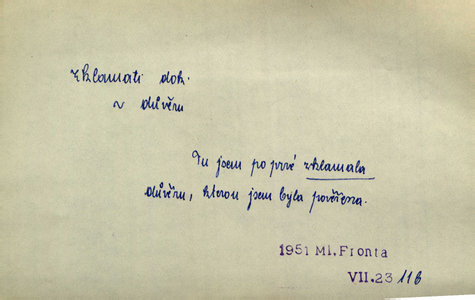 zklamati dok.
~ důvěru
Tu jsem po prvé zklamala
důvěru, kterou jsem byla pověřena.
1951 Ml. Fronta
VII.23 116